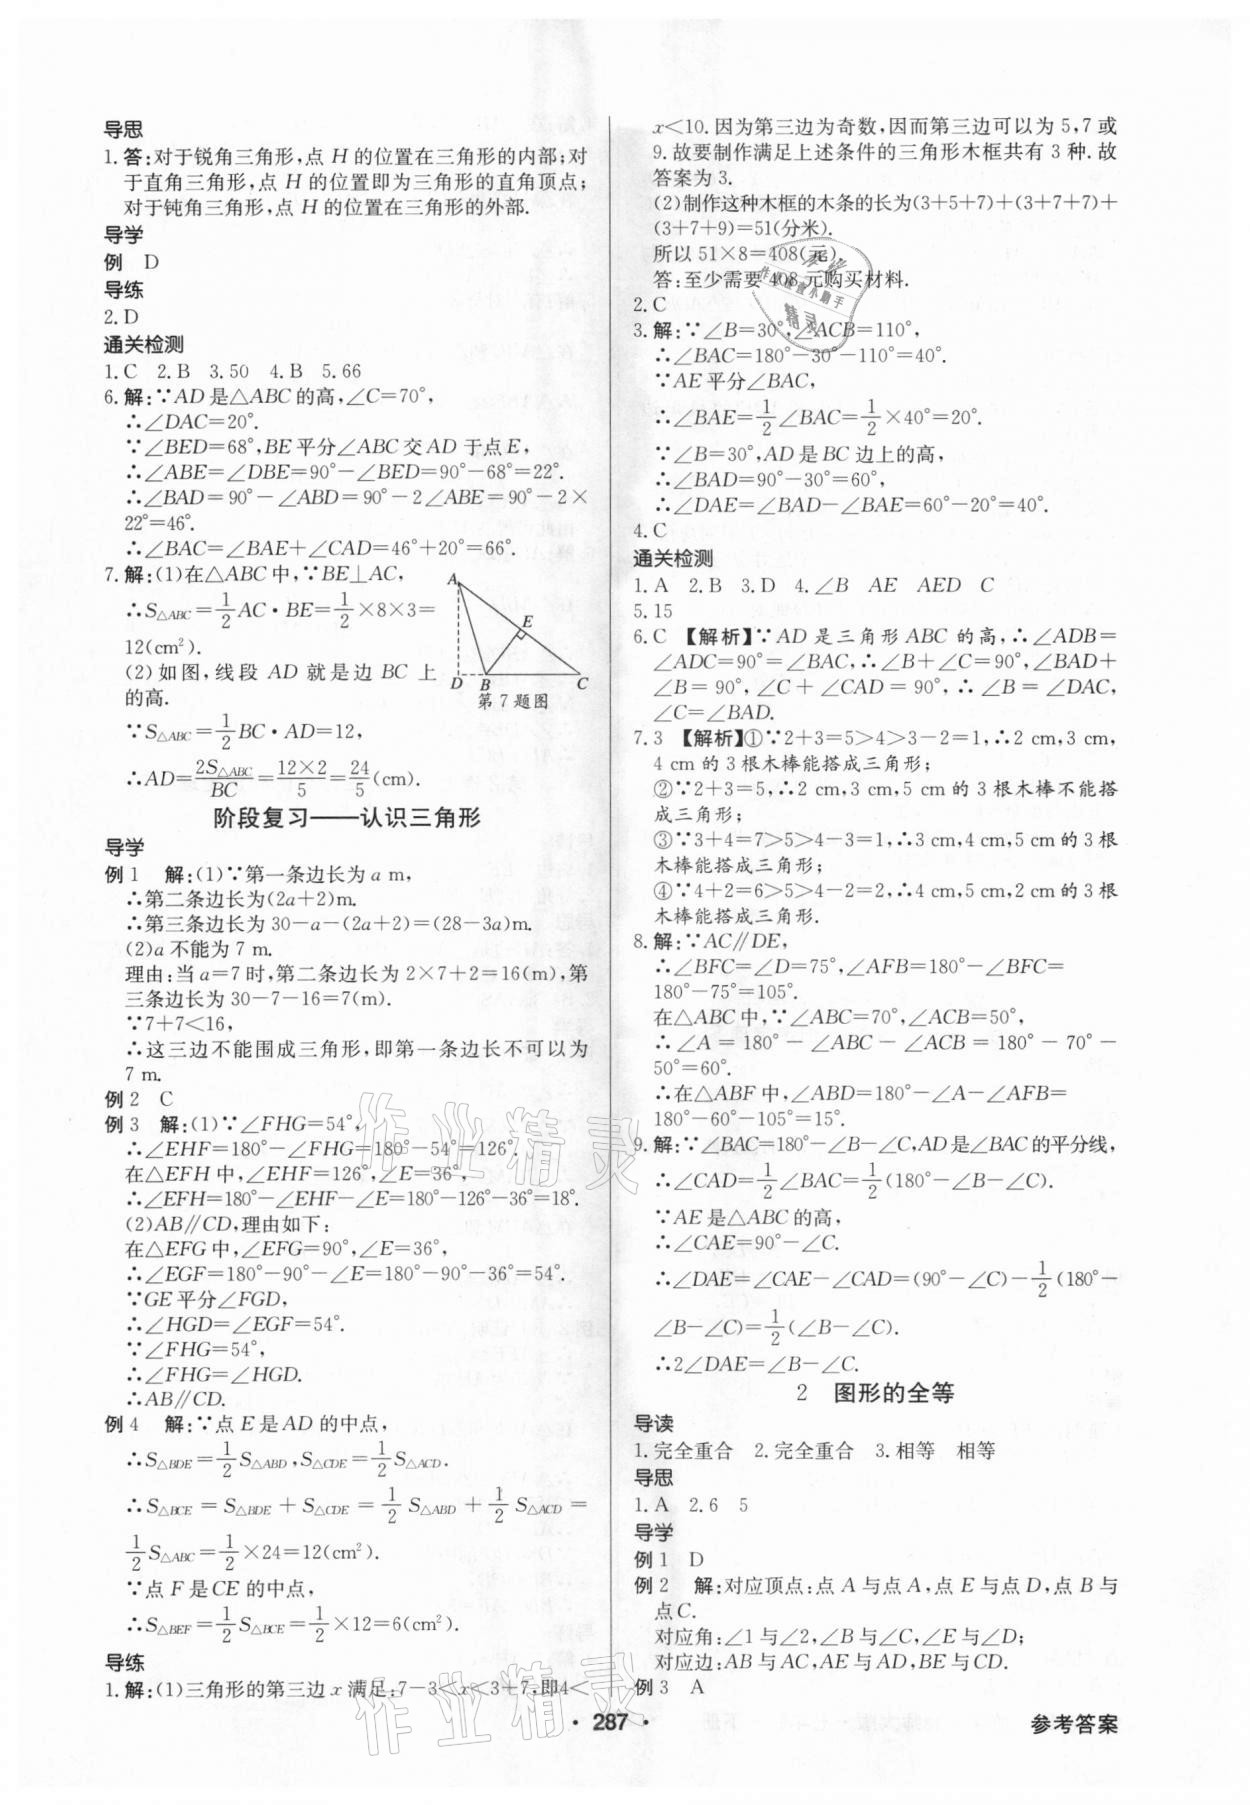 导思
1.答:对于锐角三角形,点 H 的位置在三角形的内部;对
于直角三角形,点 H 的位置即为三角形的直角顶点;
对于钝角三角形,点 H 的位置在三角形的外部.
导学
例 D
导练
2.D
通关检测
1.C 2.B 3.50 4.B 5.66
6.解:∵AD是△ABC的高,∠C=70°,
∴∠DAC=20°.
∵∠BED=68°,BE平分∠ABC交AD于点E,
∴∠ABE=∠DBE=90°-∠BED=90°-68°=22°.
∴∠BAD=90°-∠ABD=90°-2∠ABE=90°-2×
22°=46°.
∴∠BAC=∠BAE+∠CAD=46°+20°=66°.
7.解:(1)在△ABC中,∵BE⊥AC,
∴S△ABC=1/2AC·BE=1/2×8×3=
12(cm²).
(2)如图,线段 AD 就是边 BC 上
的高.
A
E
D B C
第7题图
∵S△ABC=1/2BC·AD=12,
∴AD=2S△ABC/BC=12×2/5=24/5(cm).
阶段复习——认识三角形
导学
例1 解:(1)∵第一条边长为a m,
∴第二条边长为(2a+2)m.
∴第三条边长为30-a-(2a+2)=(28-3a)m.
(2)a不能为7 m.
理由:当a=7时,第二条边长为2×7+2=16(m),第
三条边长为30-7-16=7(m).
∵7+7<16,
∴这三边不能围成三角形,即第一条边长不可以为
7 m.
例2 C
例3 解:(1)∵∠FHG=54°,
∴∠EHF=180°-∠FHG=180°-54°=126°.
在△EFH中,∠EHF=126°,∠E=36°,
∴∠EFH=180°-∠EHF-∠E=180°-126°-36°=18°.
(2)AB∥CD,理由如下:
在△EFG中,∠EFG=90°,∠E=36°,
∴∠EGF=180°-90°-∠E=180°-90°-36°=54°.
∵GE平分∠FGD,
∴∠HGD=∠EGF=54°.
∵∠FHG=54°,
∴∠FHG=∠HGD.
∴AB∥CD.
例4 解:∵点E是AD的中点,
∴S△BDE=1/2S△ABD,S△CDE=1/2S△ACD.
∴S△BCE=S△BDE+S△CDE=1/2S△ABD+1/2S△ACD=
1/2S△ABC=1/2×24=12(cm²).
∵点F是CE的中点,
∴S△BEF=1/2S△BCE=1/2×12=6(cm²).
导练
1.解:(1)三角形的第三边x满足:7-3<x<3+7,即4<
x<10.因为第三边为奇数,因而第三边可以为5,7或
9.故要制作满足上述条件的三角形木框共有3种.故
答案为3.
(2)制作这种木框的木条的长为(3+5+7)+(3+7+7)+
(3+7+9)=51(分米).
所以51×8=408(元).
答:至少需要408元购买材料.
2.C
3.解:∵∠B=30°,∠ACB=110°,
∴∠BAC=180°-30°-110°=40°.
∵AE平分∠BAC,
∴∠BAE=1/2∠BAC=1/2×40°=20°.
∵∠B=30°,AD是BC边上的高,
∴∠BAD=90°-30°=60°,
∴∠DAE=∠BAD-∠BAE=60°-20°=40°.
4.C
通关检测
1.A 2.B 3.D 4.∠B AE AED C
5.15
6.C 【解析】∵AD是三角形ABC的高,∴∠ADB=
∠ADC=90°=∠BAC,∴∠B+∠C=90°,∠BAD+
∠B=90°,∠C+∠CAD=90°,∴∠B=∠DAC,
∠C=∠BAD.
7.3 【解析】①∵2+3=5>4>3-2=1,∴2 cm,3 cm,
4 cm的3根木棒能搭成三角形;
②∵2+3=5,∴2 cm,3 cm,5 cm的3根木棒不能搭
成三角形;
③∵3+4=7>5>4-3=1,∴3 cm,4 cm,5 cm的3根
木棒能搭成三角形;
④∵4+2=6>5>4-2=2,∴4 cm,5 cm,2 cm的3根
木棒能搭成三角形.
8.解:∵AC∥DE,
∴∠BFC=∠D=75°,∠AFB=180°-∠BFC=
180°-75°=105°.
在△ABC中,∵∠ABC=70°,∠ACB=50°,
∴∠A=180°-∠ABC-∠ACB=180°-70°-
50°=60°.
∴在△ABF中,∠ABD=180°-∠A-∠AFB=
180°-60°-105°=15°.
9.解:∵∠BAC=180°-∠B-∠C,AD是∠BAC的平分线,
∴∠CAD=1/2∠BAC=1/2(180°-∠B-∠C).
∵AE是△ABC的高,
∴∠CAE=90°-∠C.
∴∠DAE=∠CAE-∠CAD=(90°-∠C)-1/2(180°-
∠B-∠C)=1/2(∠B-∠C).
∴2∠DAE=∠B-∠C.
2 图形的全等
导读
1.完全重合 2.完全重合 3.相等 相等
导思
1.A 2.6 5
导学
例1 D
例2 解:对应顶点:点A与点A,点E与点D,点B与
点C.
对应角:∠1与∠2,∠B与∠C,∠E与∠D;
对应边:AB与AC,AE与AD,BE与CD.
例3 A
·287·
参考答案
作业精灵
作业精灵
作业检查小助手
精灵